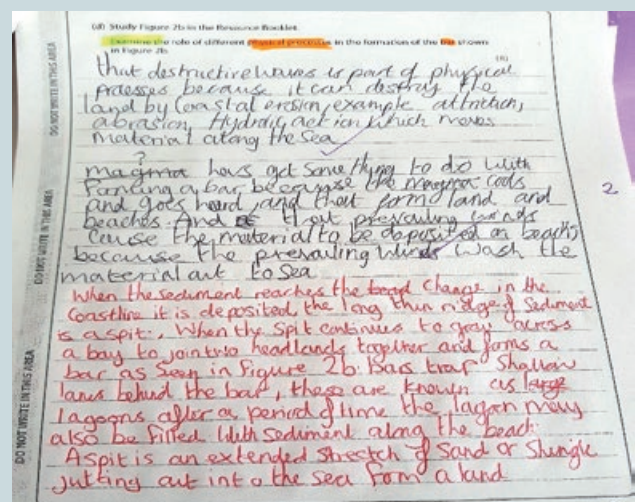 (d) Study Figure 2b in the Resource Booklet.
Examine the role of different physical processes in the formation of the bar shown
in Figure 2b.
(8)
that destructive waves is part of physical
processes because it can destroy the
land by Coastal erosion, example attrition,
abrasion, Hydralic action which moves
material along the Sea
?
magma have got Something to do with
forming a bar because the magma cools
and goes hard, and that forms land and
beaches. And that prevailing winds
Cause the material to be deposited on beach,
because the prevailing winds wash the
material out to Sea
2
When the sediment reaches the change in the
Coastline it is deposited, the long thin ridge of Sediment
is a spit. When the Spit continues to grow across
a bay to join two headlands together and forms a
bar as Seen in figure 2b. Bars trap Shallow
behind the bar, these are known as
lagoons after a period of time the lagoon may
also be filled with Sediment along the beach.
A spit is an extended Stretch of Sand or Shingle
Jutting out into the Sea from a land
DO NOT WRITE IN THIS AREA
DO NOT WRITE IN THIS AREA
DO NOT WRITE IN THIS AREA